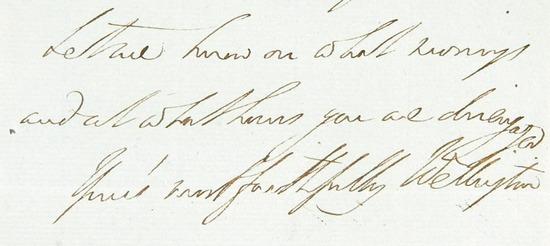 Let me know on what mornings
and at what hours you are disengaged
Yours most faithfully Wellington